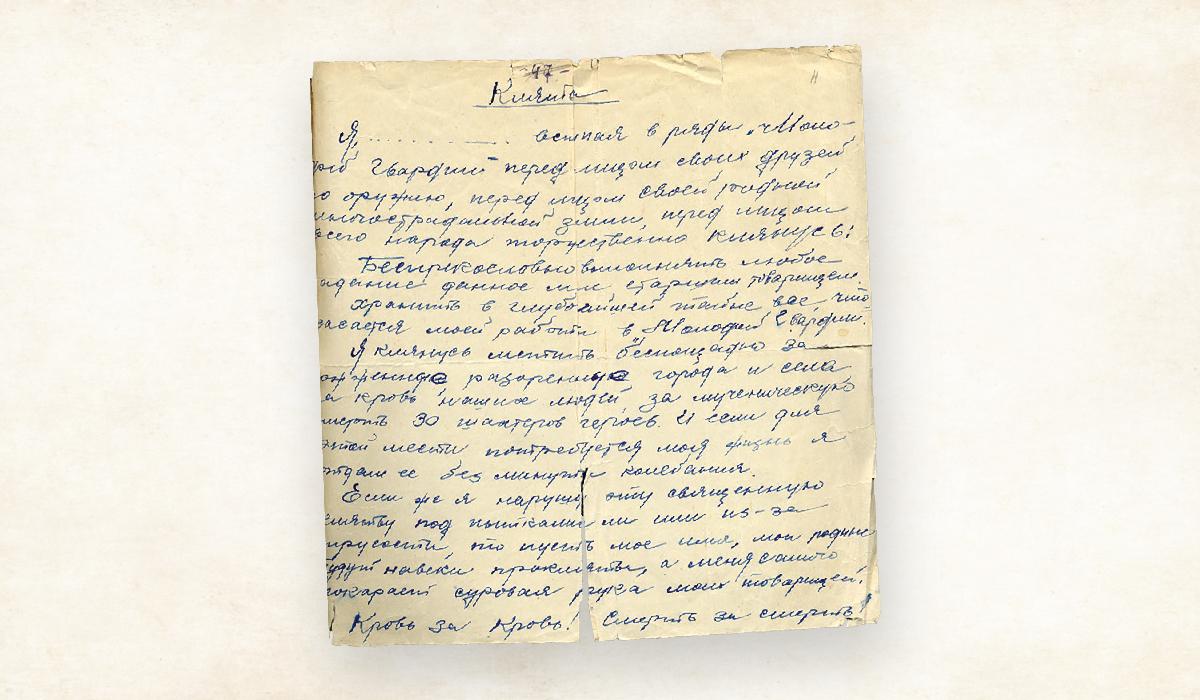 -47-
Клятва
Я, . . . . . . . . . . . . вступая в ряды „Моло-
дой Гвардии" перед лицом своих друзей
по оружию, перед лицом своей родной
многострадальной земли, перед лицом
всего народа торжественно клянусь:
Беспрекословно выполнять любое
задание данное мне старшим товарищем.
Хранить в глубочайшей тайне все, что
касается моей работы в „Молодой Гвардии".
Я клянусь мстить беспощадно за
сожженные разоренные города и села
за кровь наших людей, за мученическую
смерть 30 шахтеров героев. И если для
этой мести потребуется моя жизнь я
отдам ее без минуты колебания.
Если же я нарушу эту священную
клятву под пытками ли или из-за
трусости, то пусть мое имя, мои родные
будут навеки прокляты, а меня самого
покарает суровая рука моих товарищей.
Кровь за Кровь! Смерть за смерть!